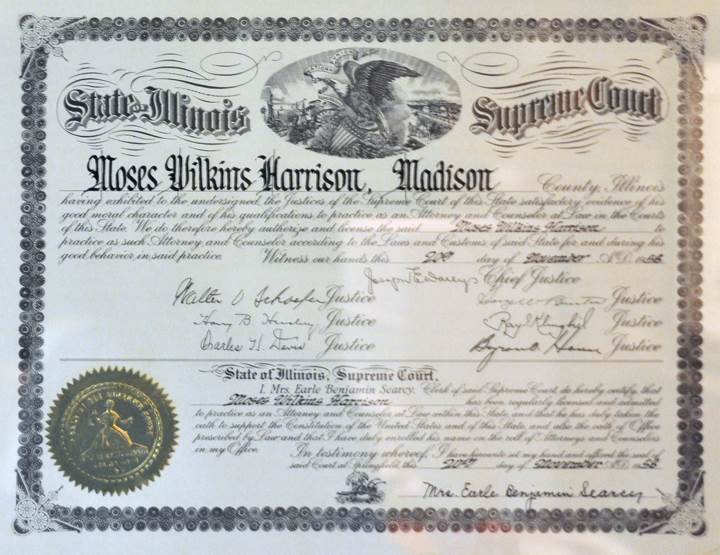 State of Illinois Supreme Court
Moses Wilkins Harrison, Madison County, Illinois
having exhibited to the undersigned, the Justices of the Supreme Court of this State satisfactory evidence of his
good moral character and of his qualifications to practice as an Attorney and Counselor at Law in the Courts
of this State, We do therefore hereby authorize and license the said Moses Wilkins Harrison to
practice as such Attorney and Counselor according to the Laws and Customs of said State for and during his
good behavior, in said practice. Witness our hands this day of November A.D. 19
Joseph E. Daily Chief Justice
Walter V. Schaefer Justice Justice
Harry B. Hershey Justice Ray I. Klingbiel Justice
Charles H. Davis Justice Byron O. House Justice
State of Illinois, Supreme Court,
I, Mrs. Earle Benjamin Searcy, Clerk of said Supreme Court, do hereby certify that
Moses Wilkins Harrison has been regularly licensed and admitted
to practice as an Attorney and Counselor at Law within this State, and that he has duly taken the
oath to support the Constitution of the United States and of this State, and also the oath of Office
prescribed by Law and that I have duly enrolled his name on the roll of Attorneys and Counselors
in my Office. In testimony whereof, I have hereunto set my hand and affixed the seal of
said Court at Springfield, this day of November A.D. 19
Mrs. Earle Benjamin Searcy